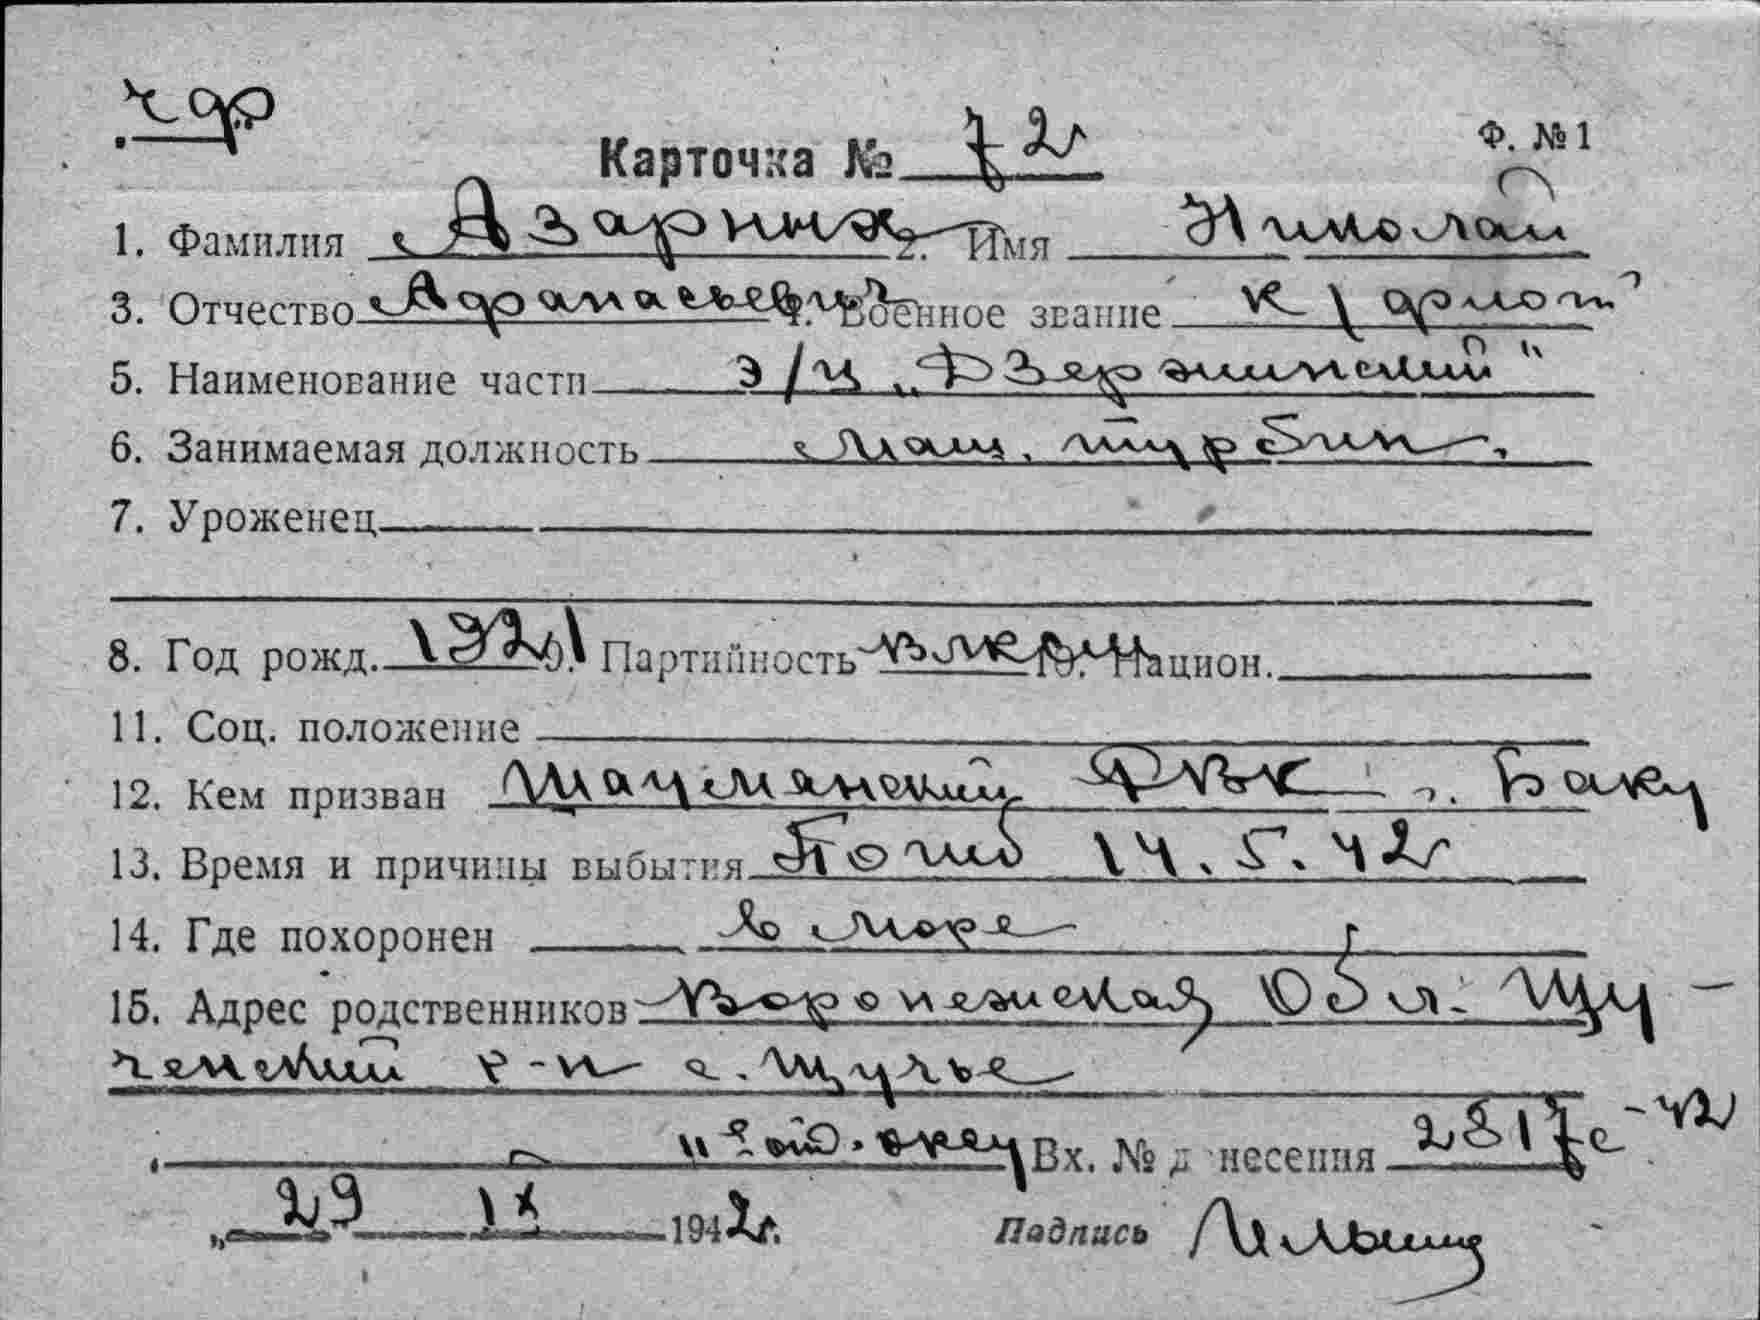 чф
Карточка № 72 Ф. № 1
1. Фамилия Азарнин 2. Имя Николай
3. Отчество Афанасьевич 4. Военное звание к/флот
5. Наименование части э/м „Дзержинский"
6. Занимаемая должность маш. турбин.
7. Уроженец
8. Год рожд. 1921 9. Партийность влксм 10. Национ.
11. Соц. положение
12. Кем призван Шаумянский РВК г. Баку
13. Время и причины выбытия Погиб 14.5.42г
14. Где похоронен В море
15. Адрес родственников Воронежская обл. Щу-
ченский р-н с. Щучье
Вх. № донесения 2817с-42
„29 IX 1942г. Подпись